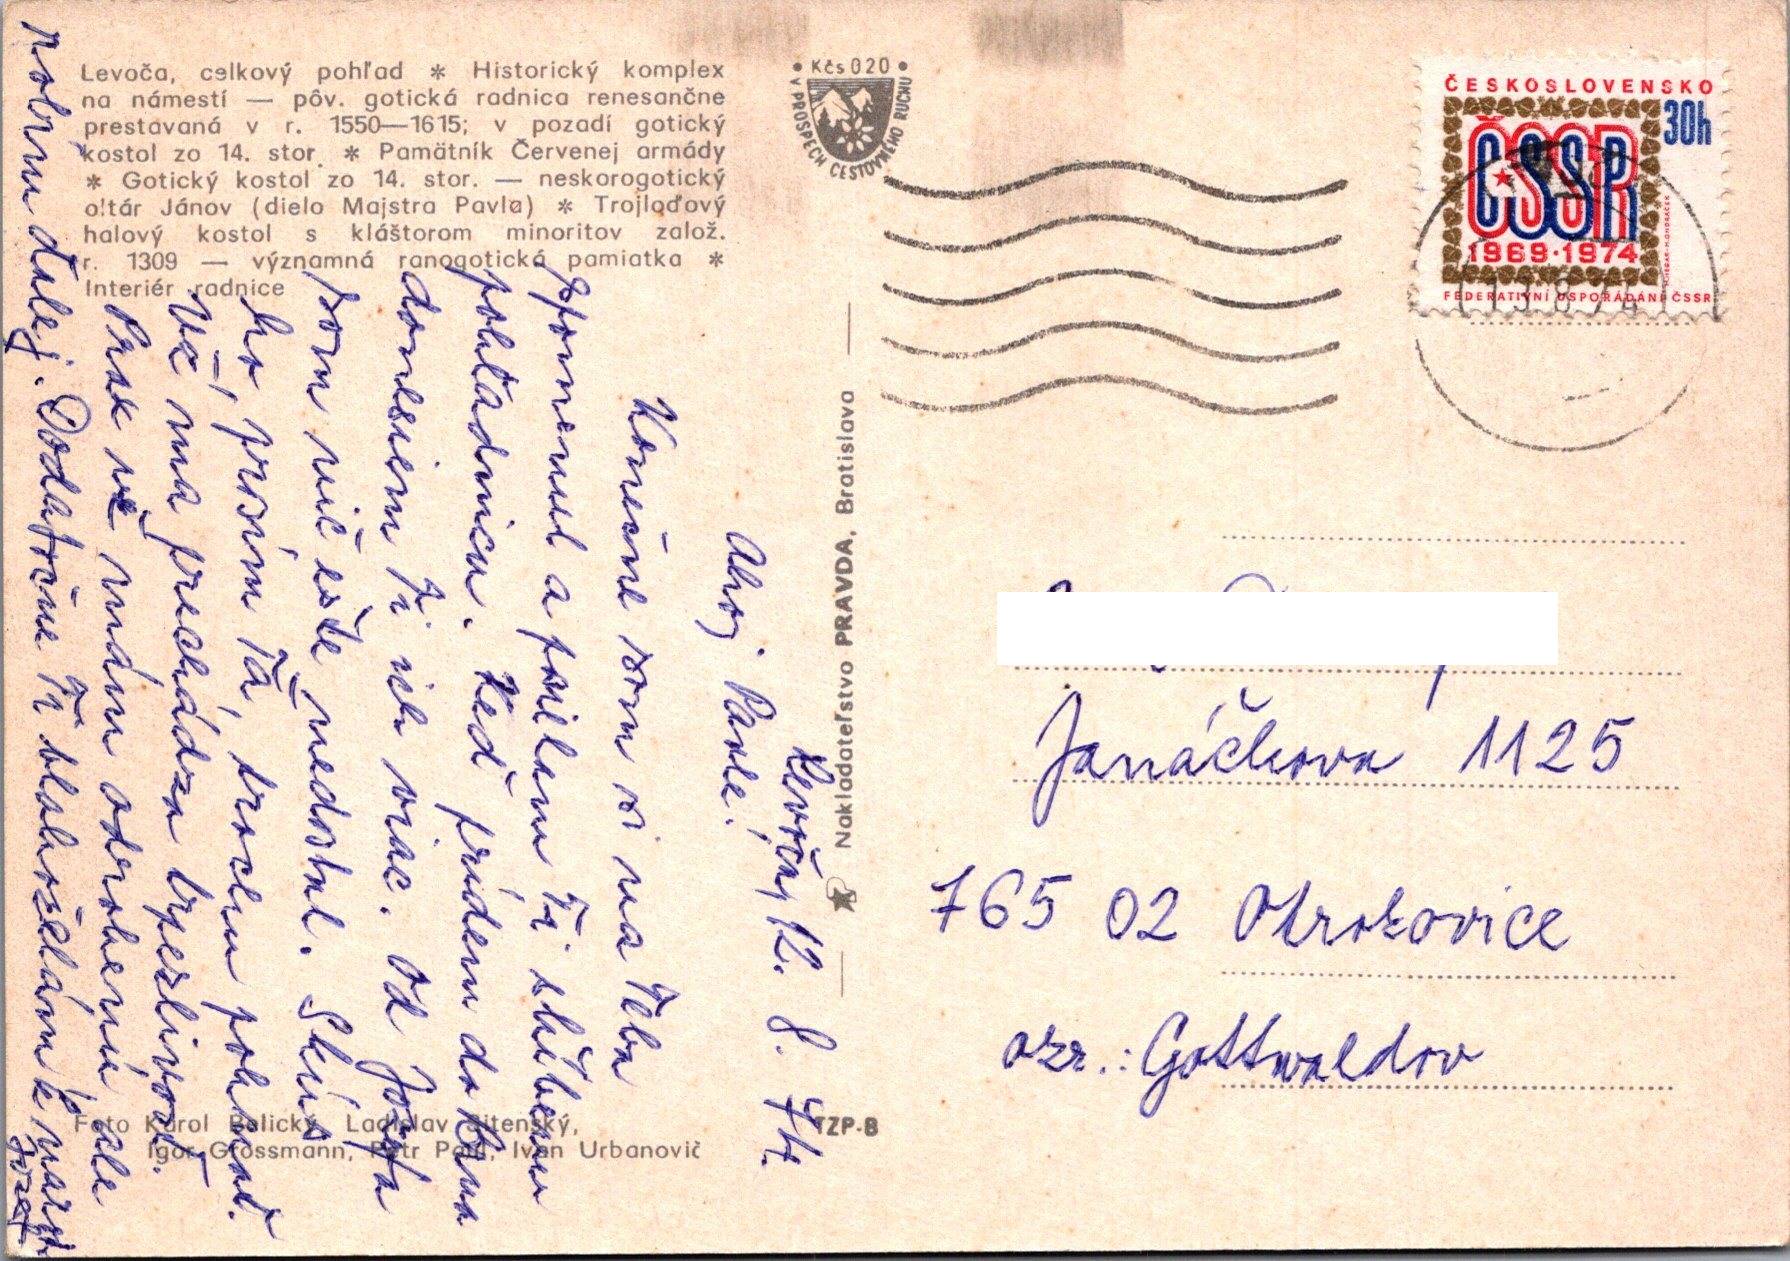 Levoča, celkový pohľad * Historický komplex
na námestí — pôv. gotická radnica renesančne
prestavaná v r. 1550—1615; v pozadí gotický
kostol zo 14. stor. * Pamätník Červenej armády
* Gotický kostol zo 14. stor. — neskorogotický
oltár Jánov (dielo Majstra Pavla) * Trojloďový
halový kostol s kláštorom minoritov založ.
r. 1309 — významná ranogotická pamiatka *
Interiér radnice
• Kčs 020 •
V PROSPECH CESTOVNÉHO RUCHU
ČESKOSLOVENSKO
30h
ČSSR
1969·1974
FEDERATIVNÍ USPOŘÁDÁNÍ ČSSR
13.8.74
Levoča, 12. 8. 74.
Ahoj Pavle!
Konečne som si na Teba
spomenul a posielam Ti slúbenu
pohľadnicu. Keď prídem do Brna
donesiem Ti ich viac. Od Jožfa
som nič ešte nedostal. Skús
ho, prosím Ťa, trochu pohnať.
Už ma prechádza trpezlivosť.
Prax už mám odrobenú ale
robím ďalej. Dodatočne Ti blahoželám k
Jozef
Nakladateľstvo PRAVDA, Bratislava
TZP-B
Foto Karol Belický, Ladislav Sitenský,
Igor Grossmann, Petr Paul, Ivan Urbanovič
Janáčkova 1125
765 02 Otrokovice
okr.: Gottwaldov